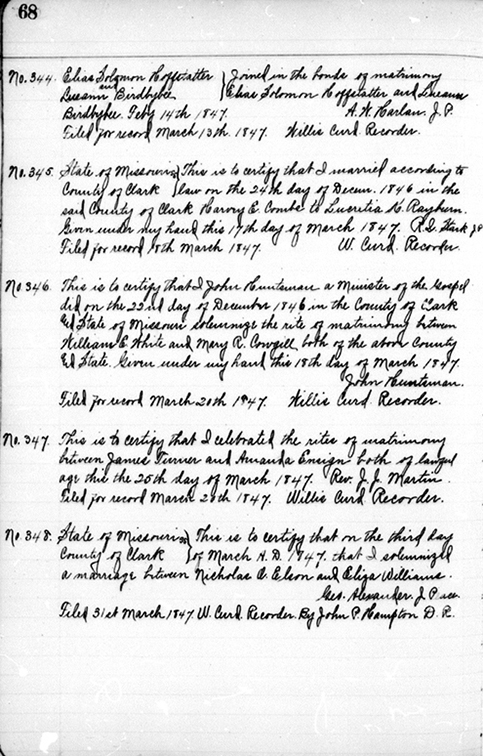 68
No. 344. Elias Solomon Hoffstatter } Joined in the bonds of matrimony
and
Lueann Birdbybee } Elias Solomon Hoffstatter and Lueann
Birdbybee. Feby 14th 1847. A. W. Harlan J. P.
Filed for record March 13th. 1847. Willis Curd. Recorder.
No. 345. State of Missouri } This is to certify that I married according to
County of Clark } law on the 24th day of Decem. 1846 in the
said County of Clark Harvey E. Combs to Lucretia H. Rayburn.
Given under my hand this 17th day of March 1847. R. D. Stark J P
Filed for record 18th March 1847. W. Curd. Recorder.
No. 346. This is to certify that I John Huntsman a Minister of the Gospel
did on the 22nd day of December 1846 in the County of Clark
Ed State of Missouri solemnize the rite of matrimony between
William E. White and Mary R. Cowgill, both of the above County
Ed State. Given under my hand this 18th day of March 1847.
John Huntsman.
Filed for record March 20th 1847. Willis Curd. Recorder.
No. 347. This is to certify that I celebrated the rites of matrimony
between James Turner and Amanda Ensign both of lawful
age this the 25th day of March 1847. Rev. J. J. Martin.
Filed for record March 29th 1847. Willis Curd Recorder.
No. 348. State of Missouri } This is to certify that on the third day
County of Clark } of March A. D. 1847. that I solemnized
a marriage between Nicholas O. Elson and Eliza Williams.
Geo. Alexander. J. Peace.
Filed 31st March 1847. W. Curd. Recorder. By John P. Hampton D. R.